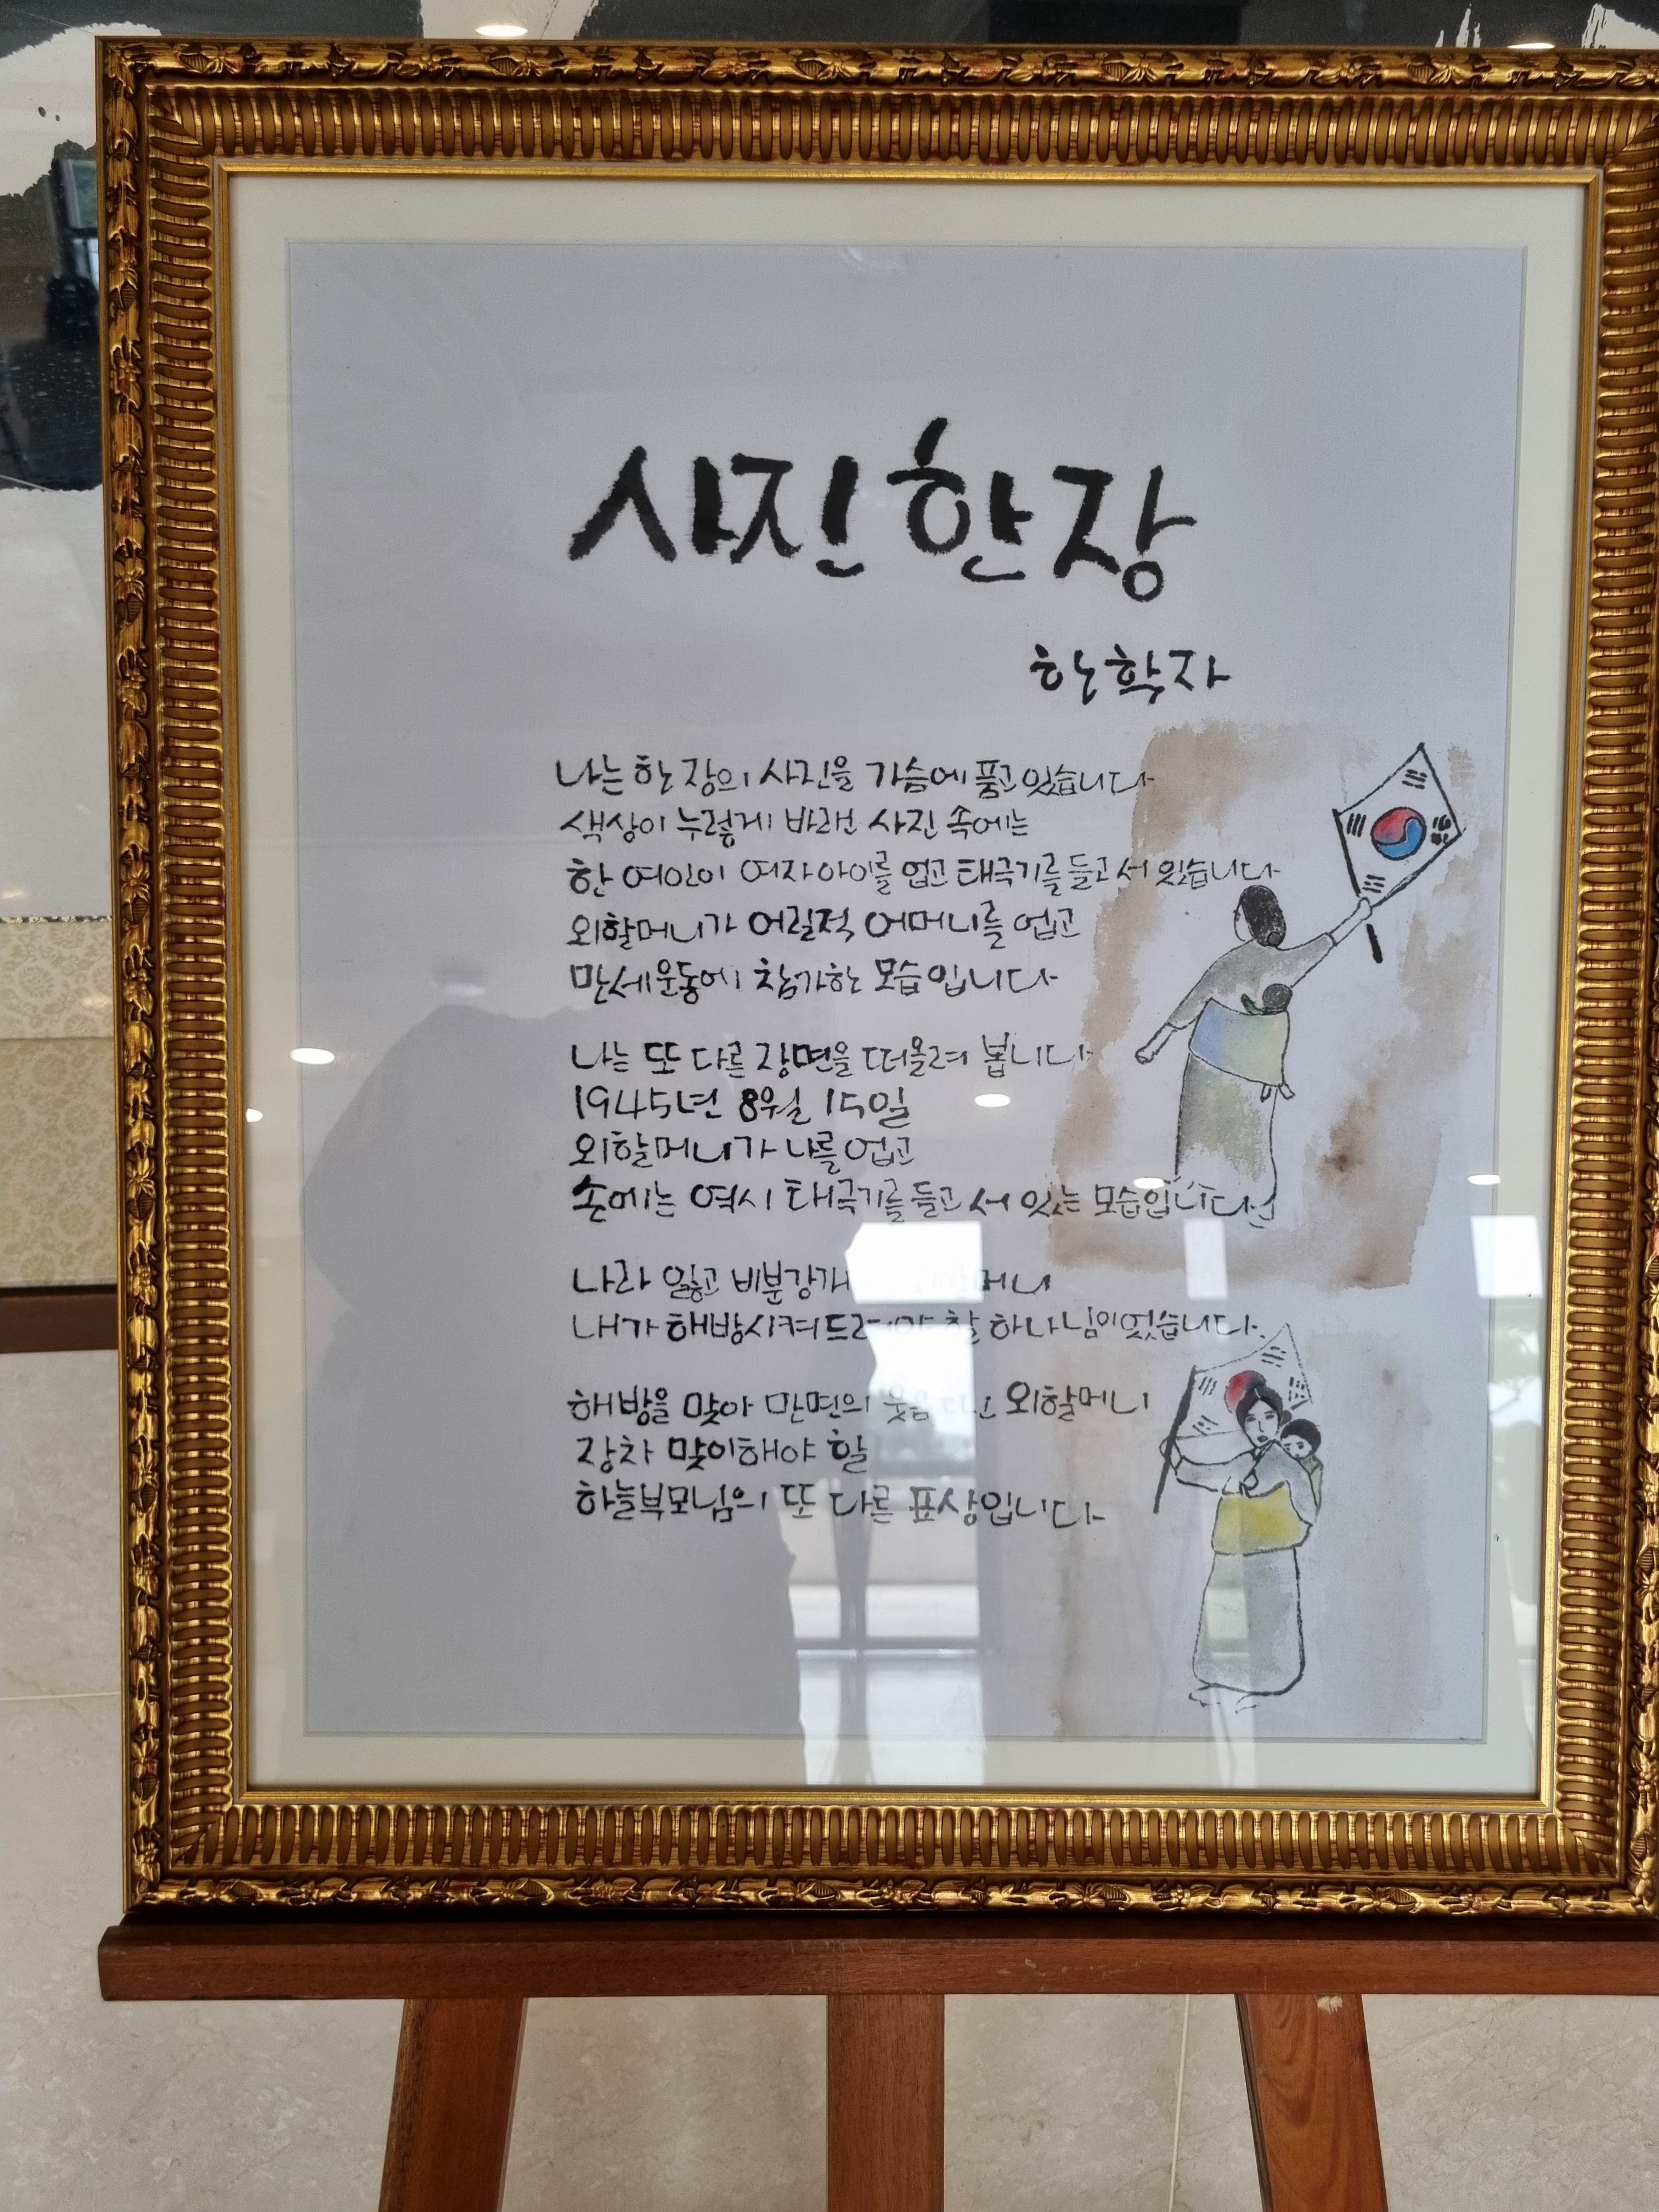 사진 한 장
한학자
나는 한 장의 사진을 가슴에 품고 있습니다
색상이 누렇게 바랜 사진 속에는
한 여인이 여자 아이를 업고 태극기를 들고 서 있습니다
외할머니가 어릴적 어머니를 업고
만세운동에 참가한 모습입니다
나는 또 다른 장면을 떠올려 봅니다
1945년 8월 15일
외할머니가 나를 업고
손에는 역시 태극기를 들고 서 있는 모습입니다
나라 잃고
내가 해방시켜 드려야 할 하나님이었습니다
해방을 맞아 만면의 웃음 띠고 외할머니
장차 맞이해야 할
하늘부모님의 또 다른 표상입니다